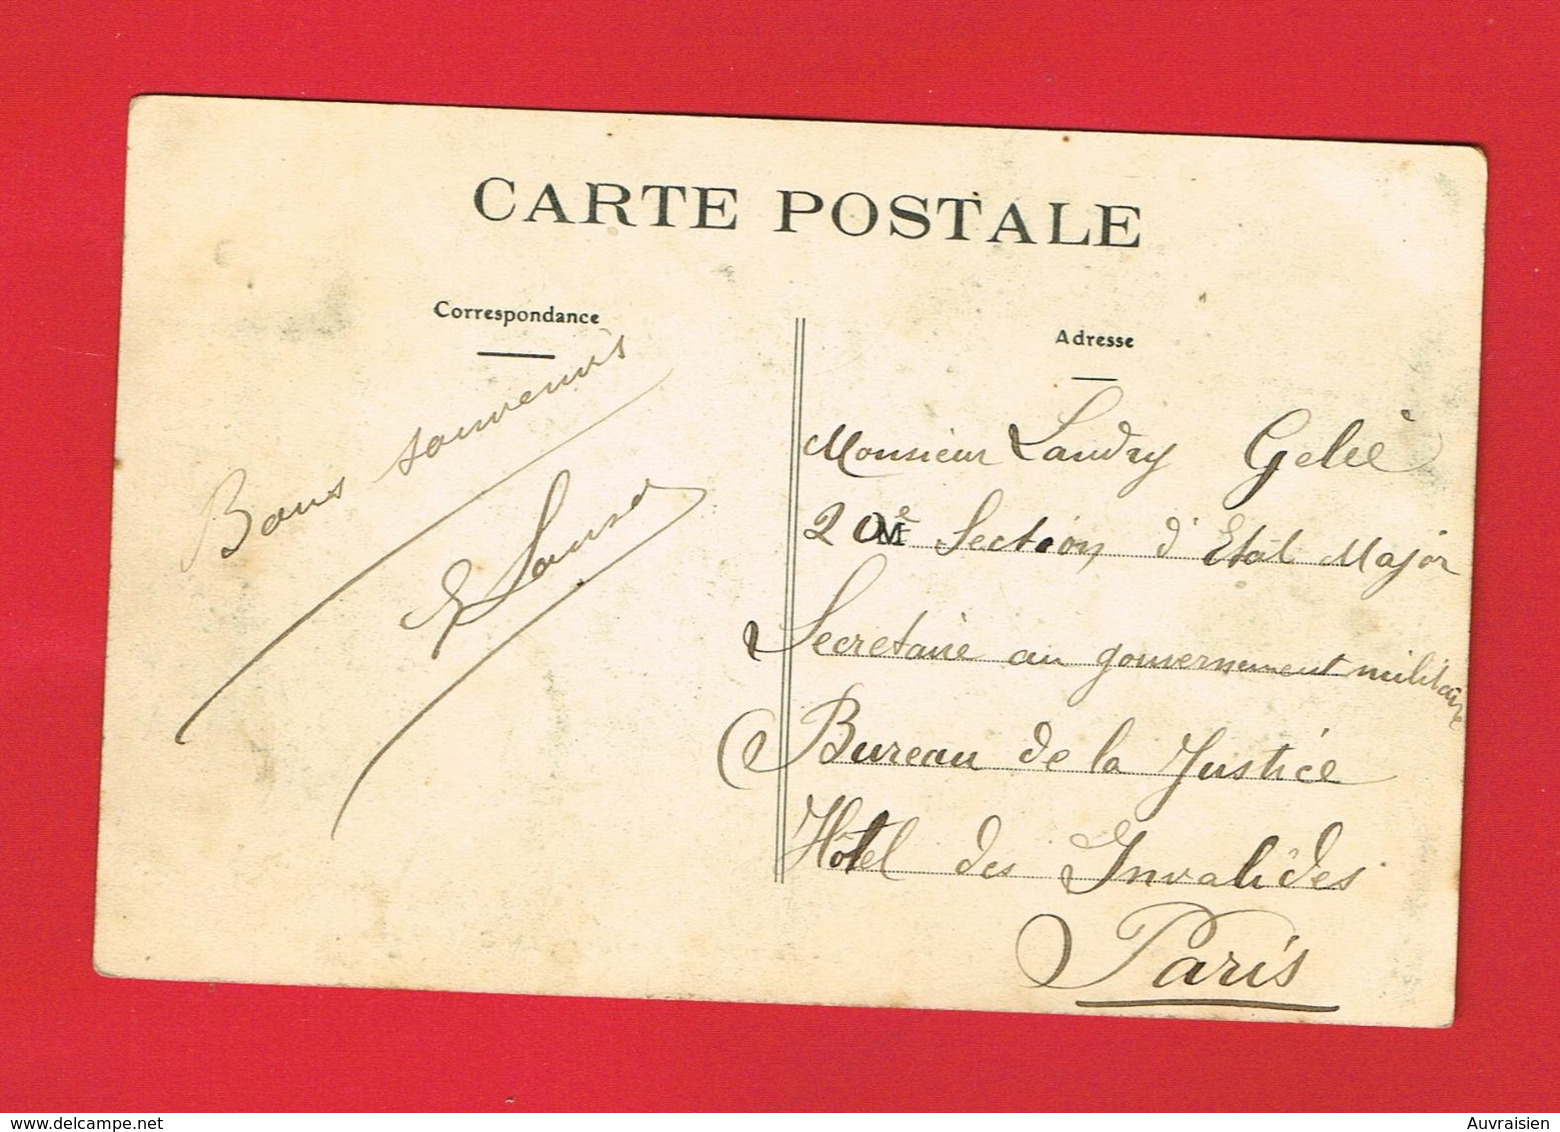 CARTE POSTALE
Correspondance
Adresse
Bons souvenirs
Monsieur Landry Gelié
20e Section d'Etat Major
Secretaire au gouvernement militaire
Bureau de la Justice
Hôtel des Invalides
Paris
www.delcampe.net
Auvraisien